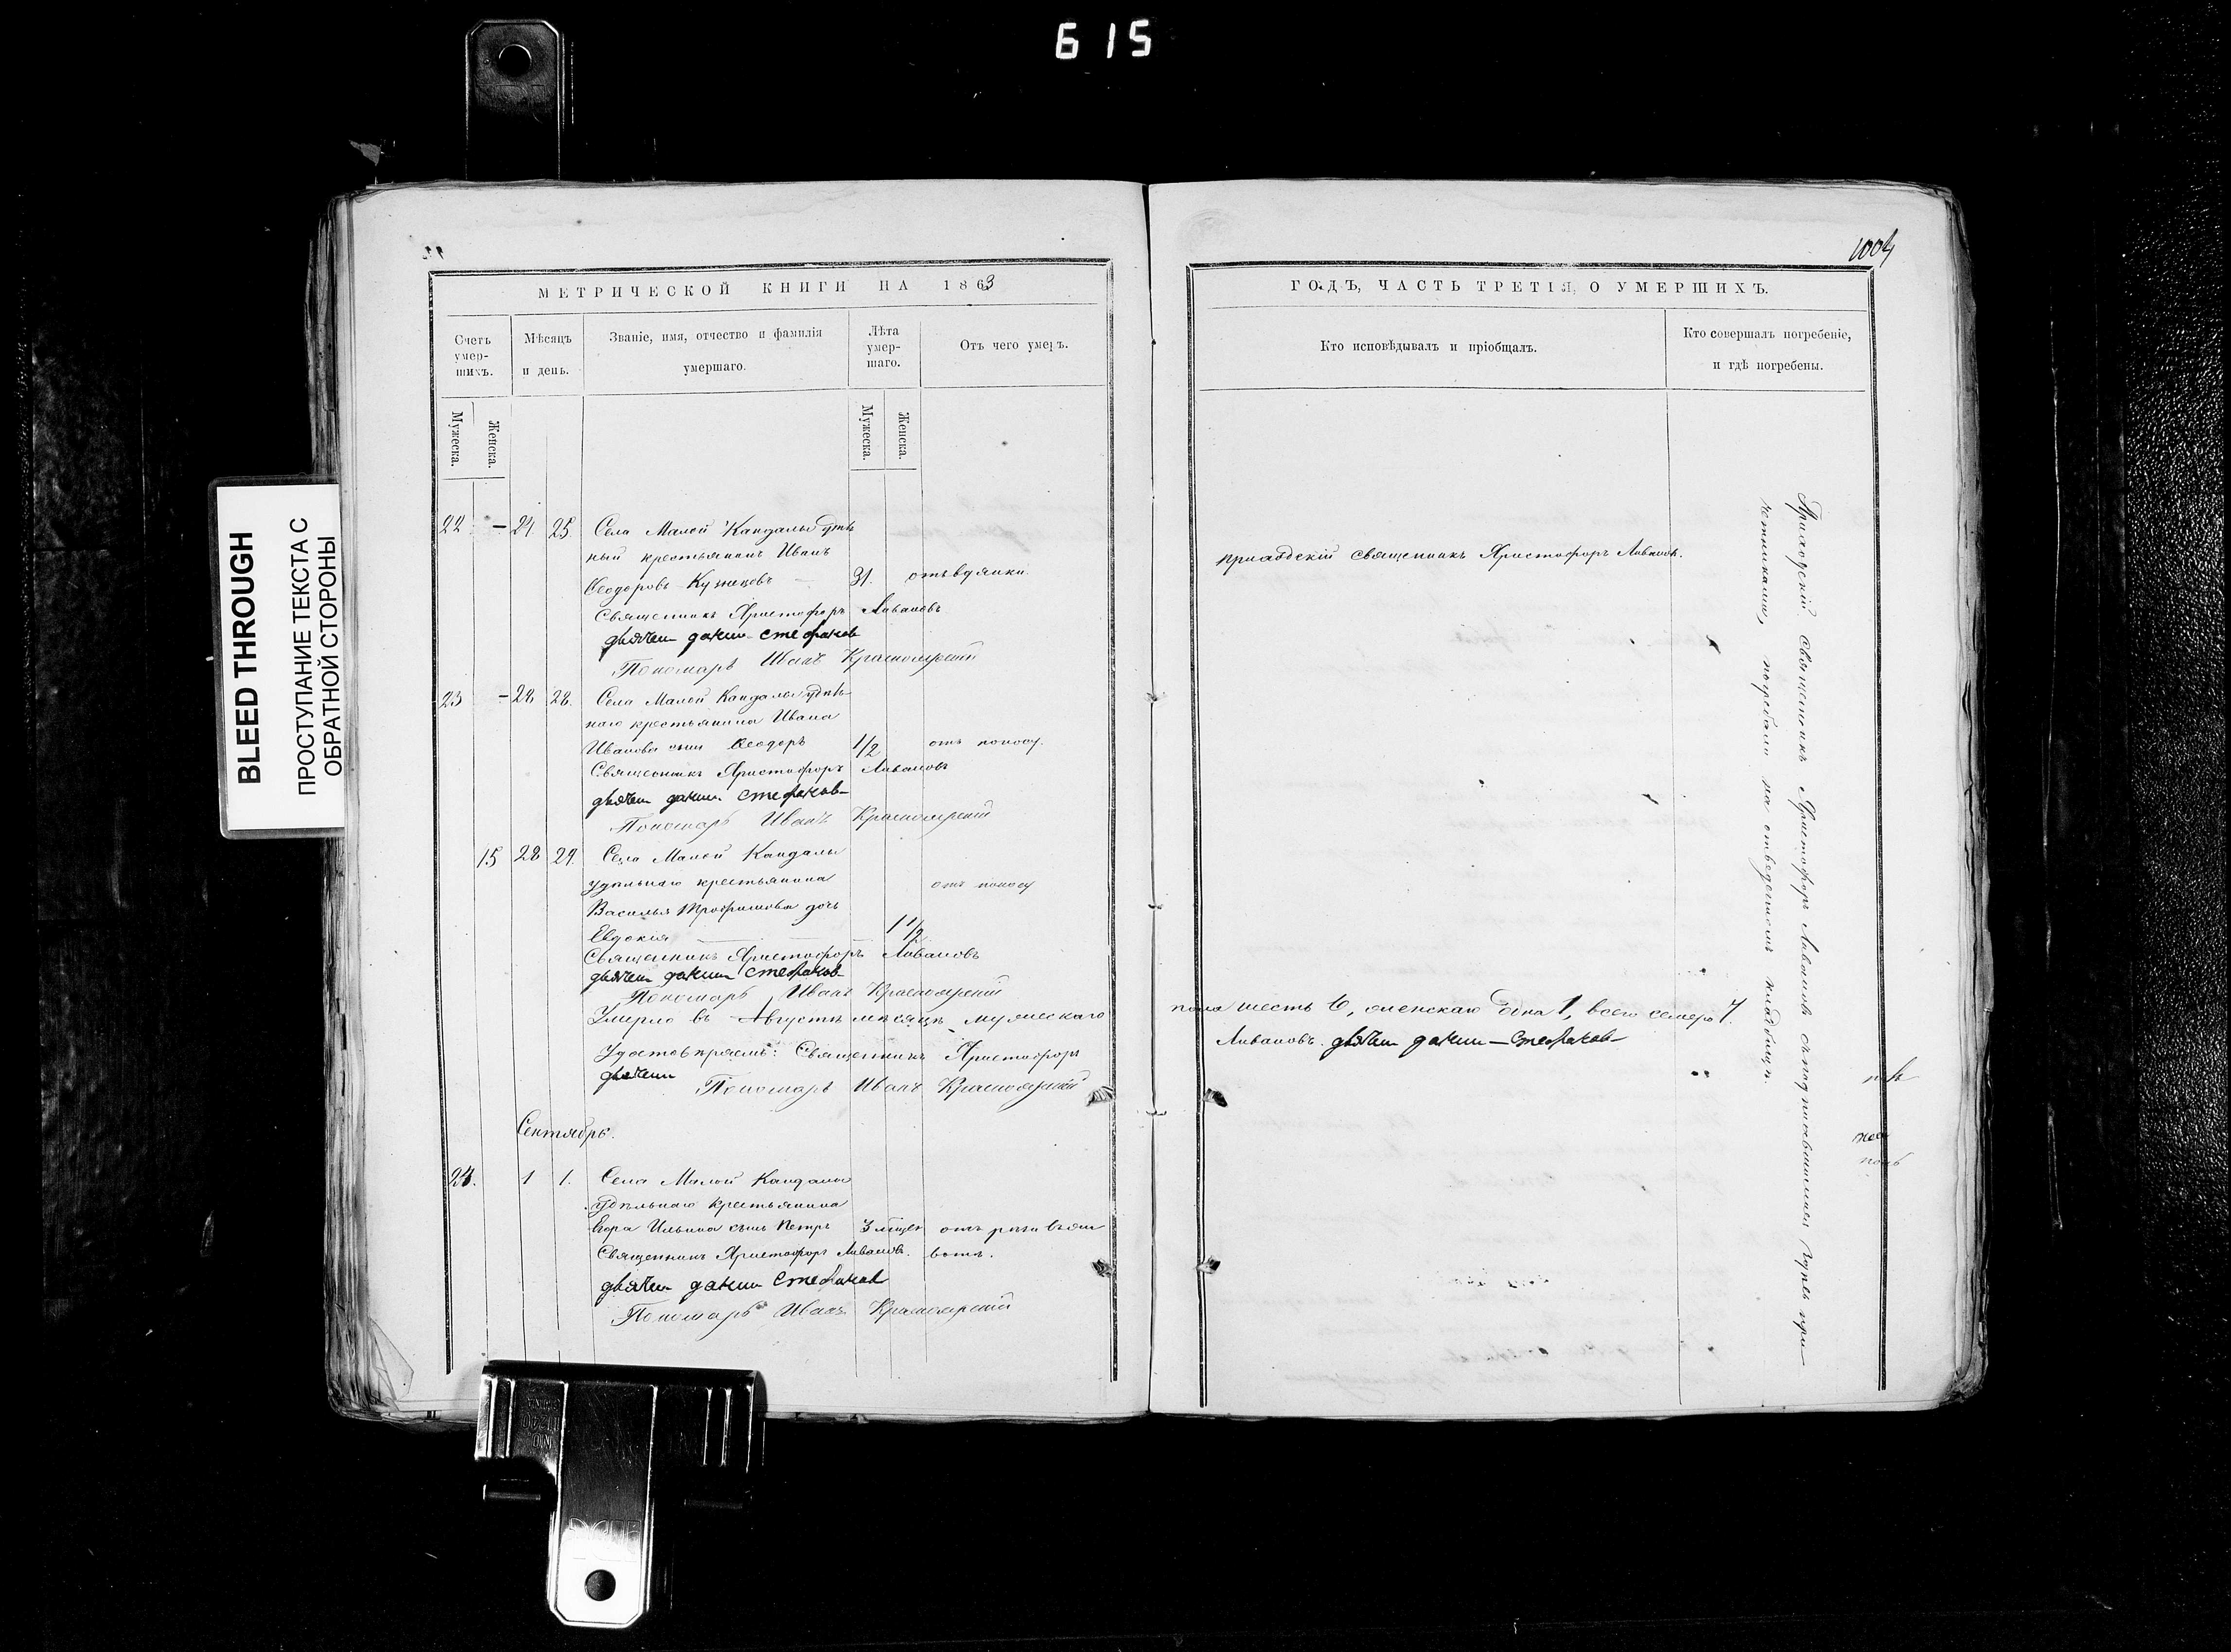 615
BLEED THROUGH
ПРОСТУПАНИЕ ТЕКСТА С
ОБРАТНОЙ СТОРОНЫ
МЕТРИЧЕСКОЙ КНИГИ НА 1863
Счетъ умер-шихъ.
Мѣсяцъ и день.
Званіе, имя, отчество и фамилія умершаго.
Лѣта умер-шаго.
Отъ чего умеръ.
Мужеска.
Женска.
Мужеска.
Женска.
22 – 24. 25. Села Малой Кандалы удѣль
ный крестьянинъ Иванъ
Ѳеодоровъ Кузнецовъ 31. отъ водянки.
Священникъ Христофоръ Ливановъ
Пономарь Иванъ Красноярскій
23 – 28 28. Села Малой Кандалы удѣль
наго крестьянина Ивана
Иванова сынъ Ѳеодоръ 1/2 отъ поносу.
Священникъ Христофоръ Ливановъ
Пономарь Иванъ Красноярскій
15 28 29. Села Малой Кандалы
удѣльнаго крестьянина отъ поносу
Василья Трофимова дочь
Евдокія 1 1/2
Священникъ Христофоръ Ливановъ
Пономарь Иванъ Красноярскій
Умерло въ Августѣ мѣсяцѣ мужескаго
Удостовѣряемъ: Священникъ Христофоръ
Пономарь Иванъ Красноярскій
Сентябрь.
24. 1 1. Села Малой Кандалы
удѣльнаго крестьянина
Егора Ильина сынъ Петръ 3 мѣсяц отъ рѣзи въ жи
Священникъ Христофоръ Ливановъ. вотѣ.
Пономарь Иванъ Красноярскій
1004
ГОДЪ, ЧАСТЬ ТРЕТІЯ, О УМЕРШИХЪ.
Кто исповѣдывалъ и пріобщалъ.
Кто совершалъ погребеніе,
и гдѣ погребены.
священникъ Христофоръ Ливановъ.
пола шесть 6, женскаго одна 1, всего семеро 7.
Ливановъ.
Приходскій священникъ Христофоръ Ливановъ съ нижеподписавшимися при
четниками, погребали на отведенномъ кладбищѣ.